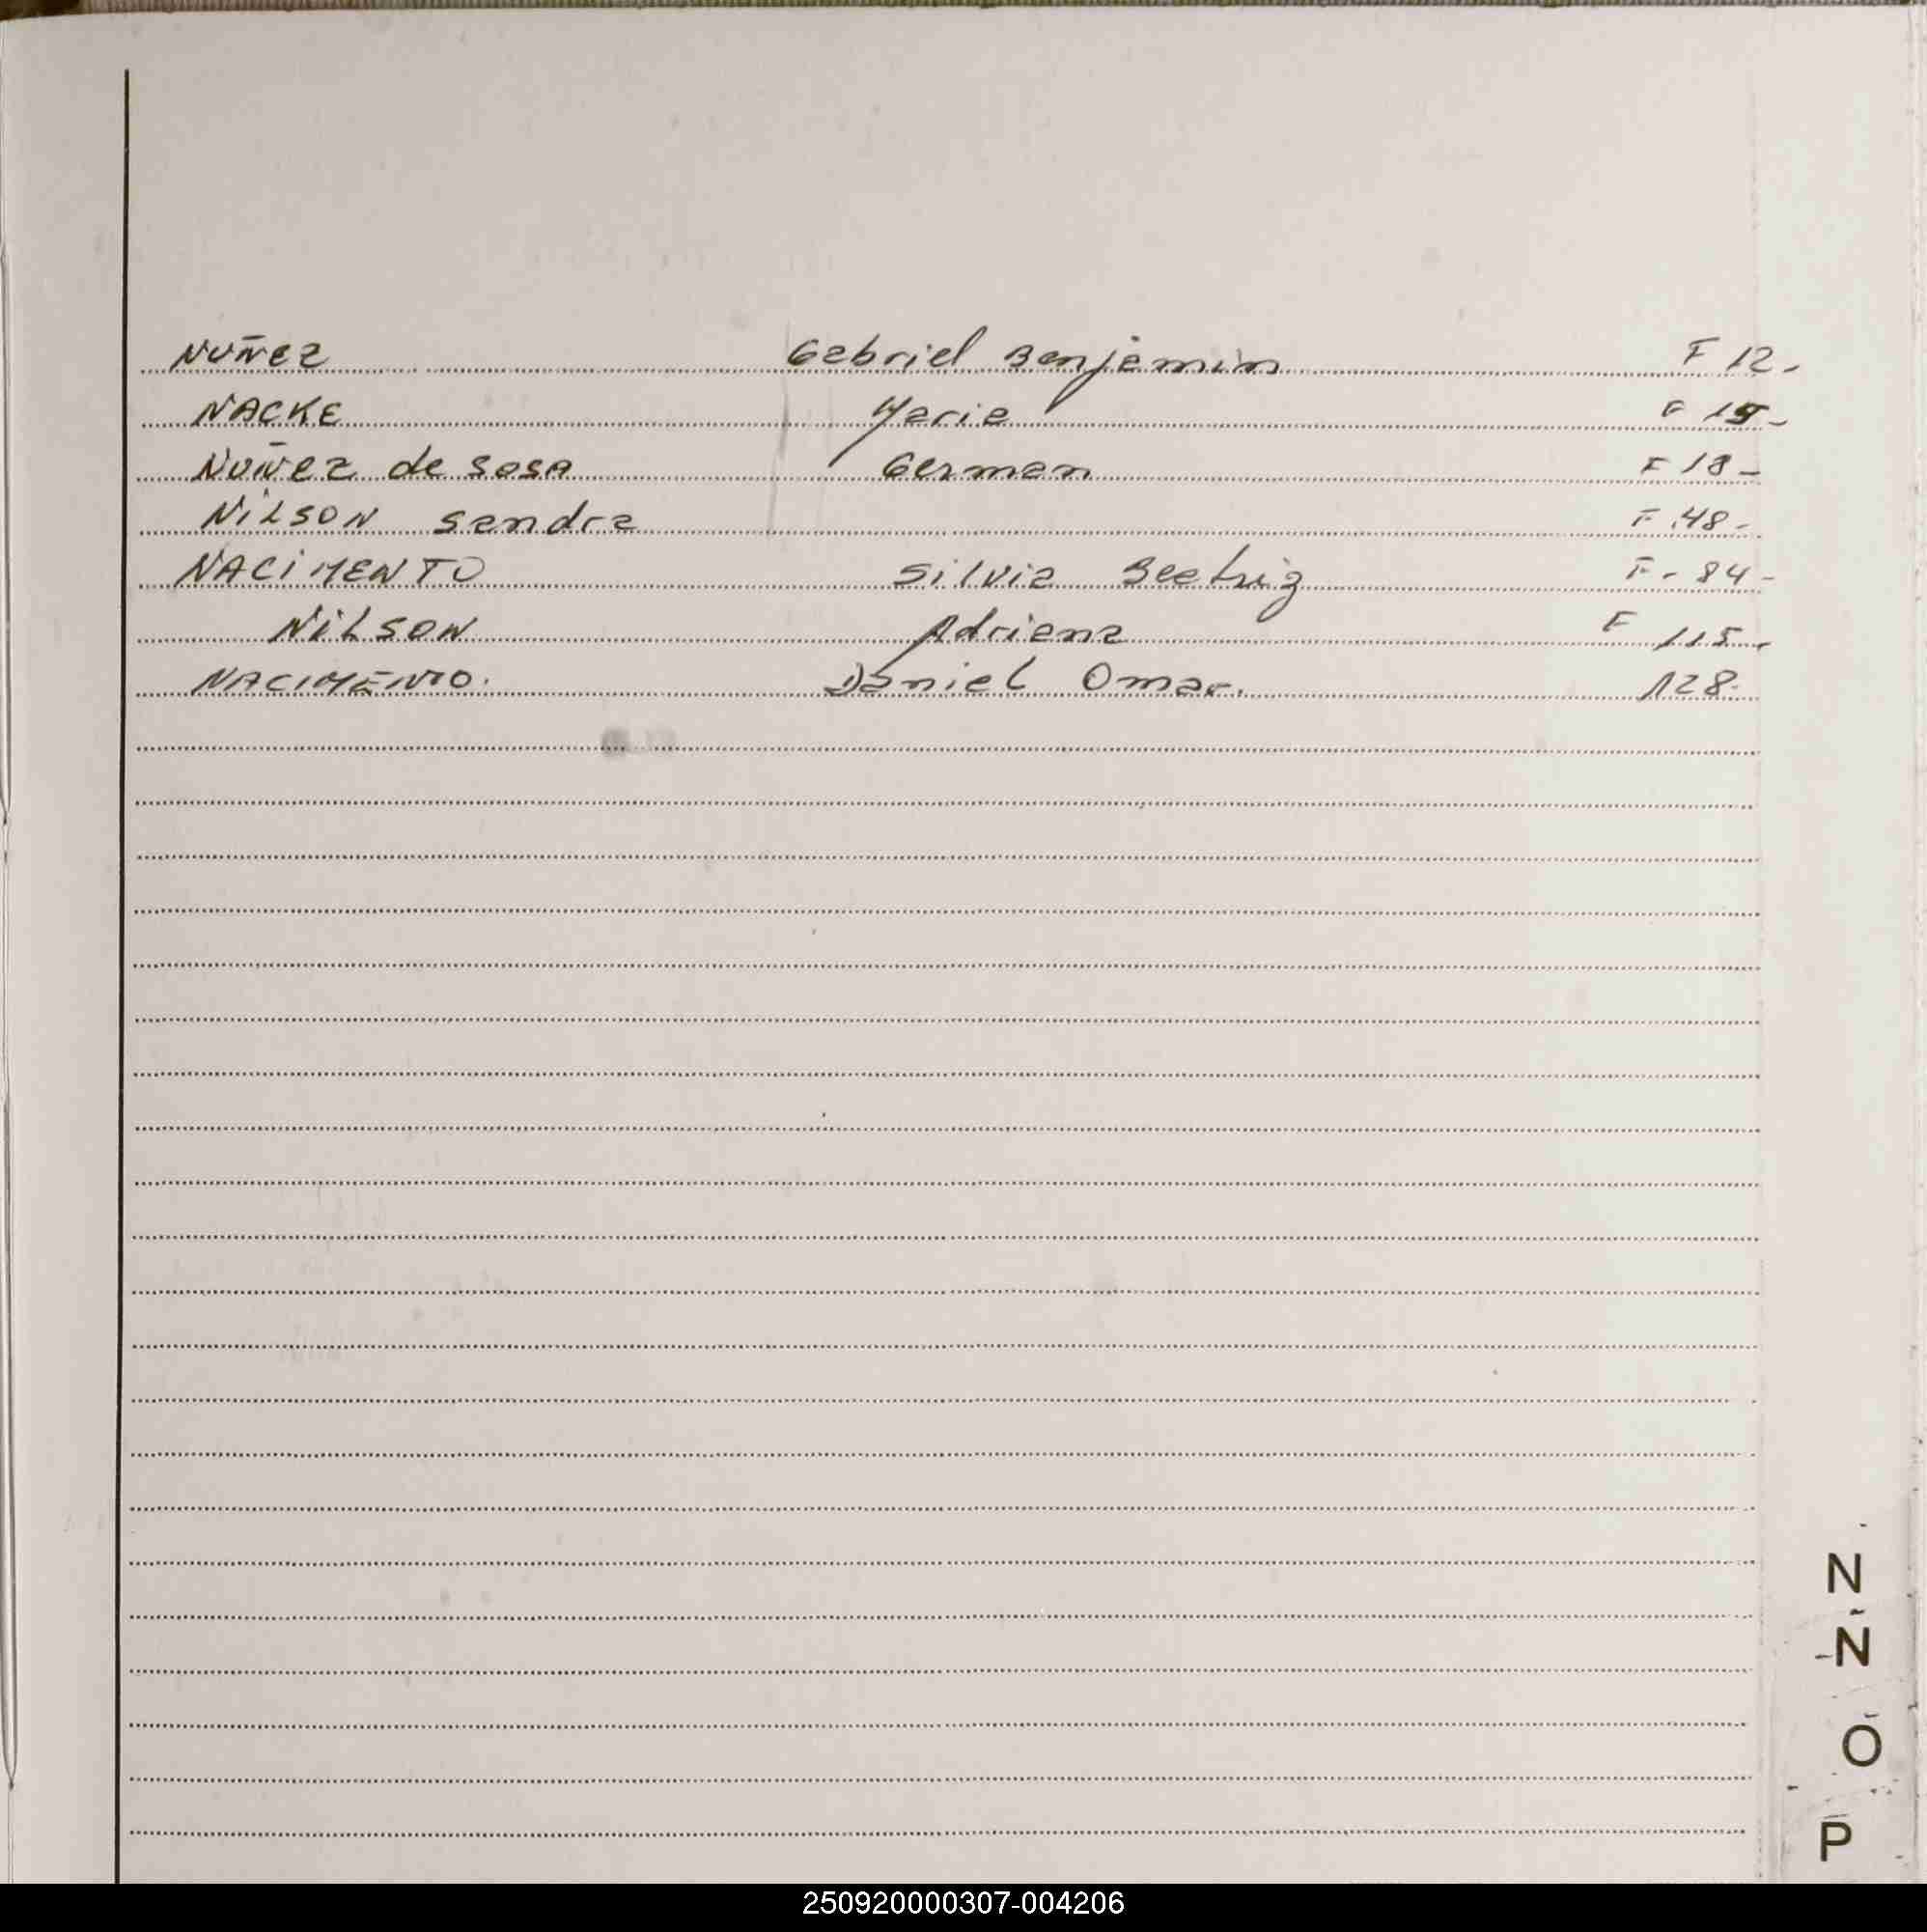 NUÑEZ Gabriel Benjamin F 12-
NACKE Maria F 15-
NUÑEZ de SOSA German F 18-
NILSON Sandra F 48-
NACIMENTO Silvia Beatriz F-84-
NILSON Adriana F 115-
NACIMENTO. Daniel Omar. 128-
N
N
O
P
250920000307-004206